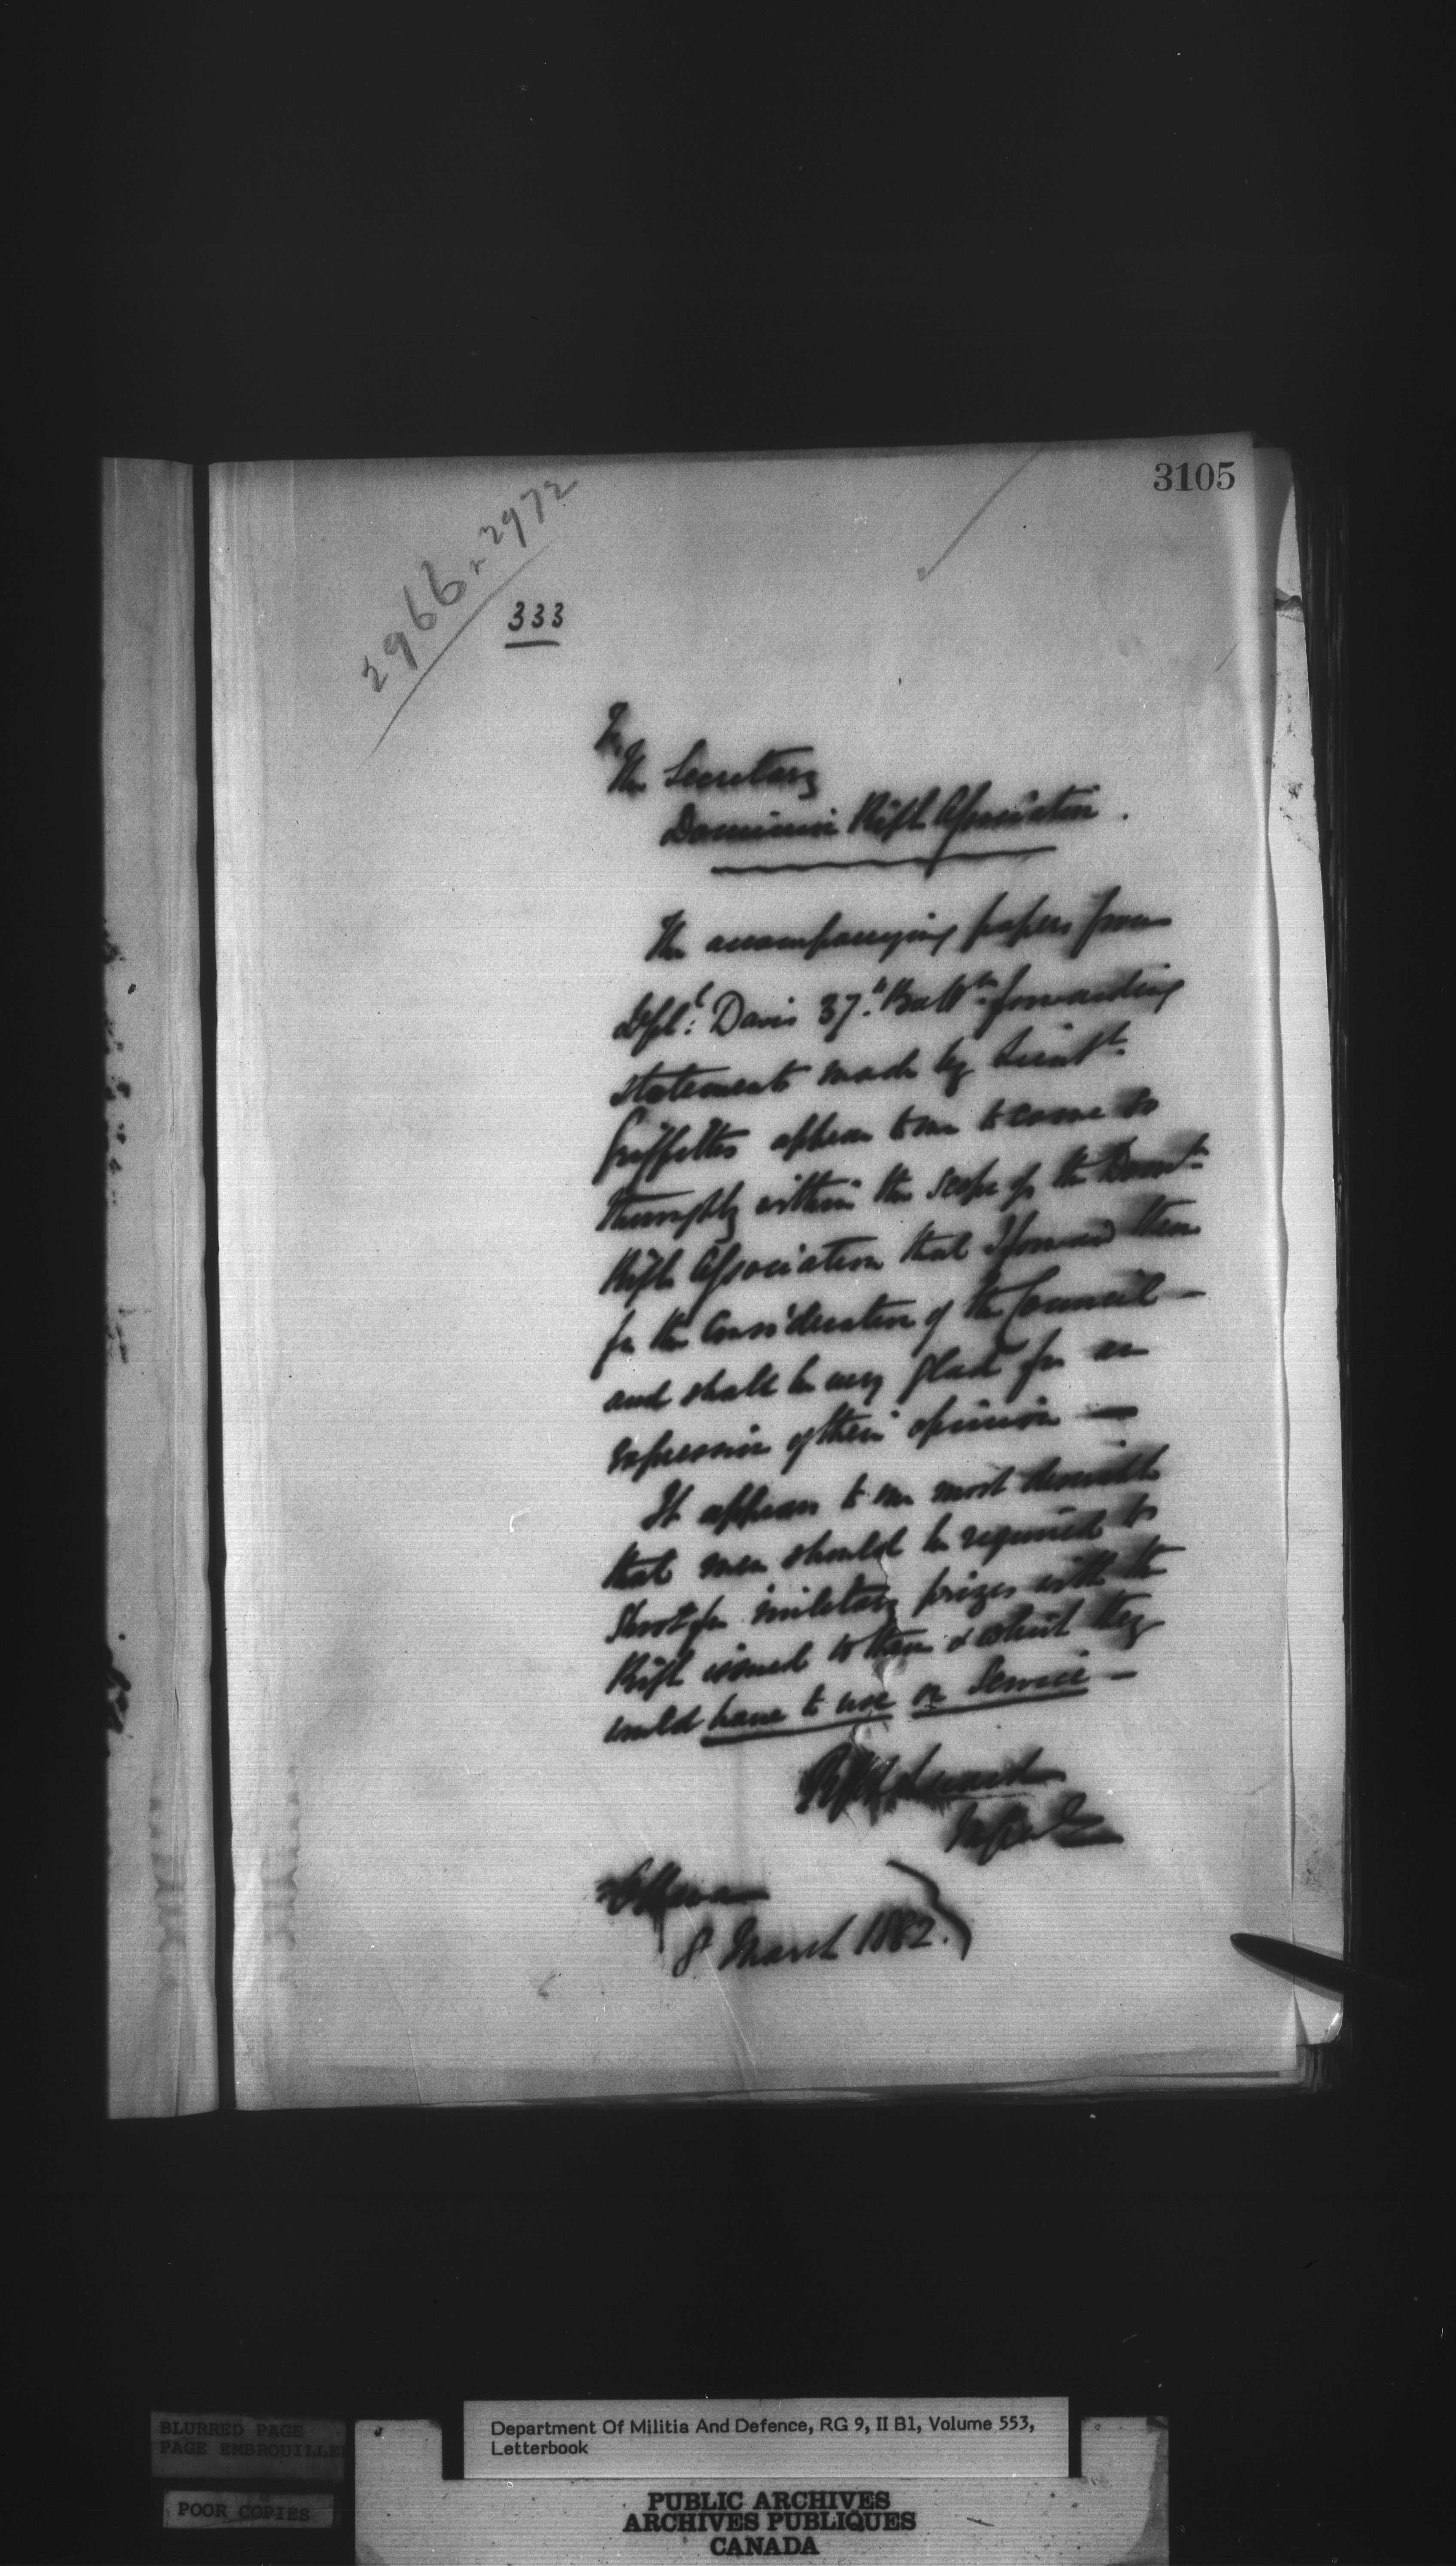 3105
2966 & 2972
333
To
The Secretary
Dominion Rifle Association.
The accompanying papers from
Davis 37th Battn forwarding
statements made by Lieutt
Griffiths appear to me to come so
thoroughly within the scope of the Domn
Rifle Association that I forward them
for the consideration of the Council —
and shall be very glad for an
expression of their opinion —
It appears to me most desirable
that men should be required to
shoot for military prizes with the
Rifle issued to them & which they
would have to use on Service —
Luard
M Genl
Ottawa
8 March 1882.
BLURRED PAGE
PAGE EMBROUILLEE
POOR COPIES
Department Of Militia And Defence, RG 9, II B1, Volume 553,
Letterbook
PUBLIC ARCHIVES
ARCHIVES PUBLIQUES
CANADA